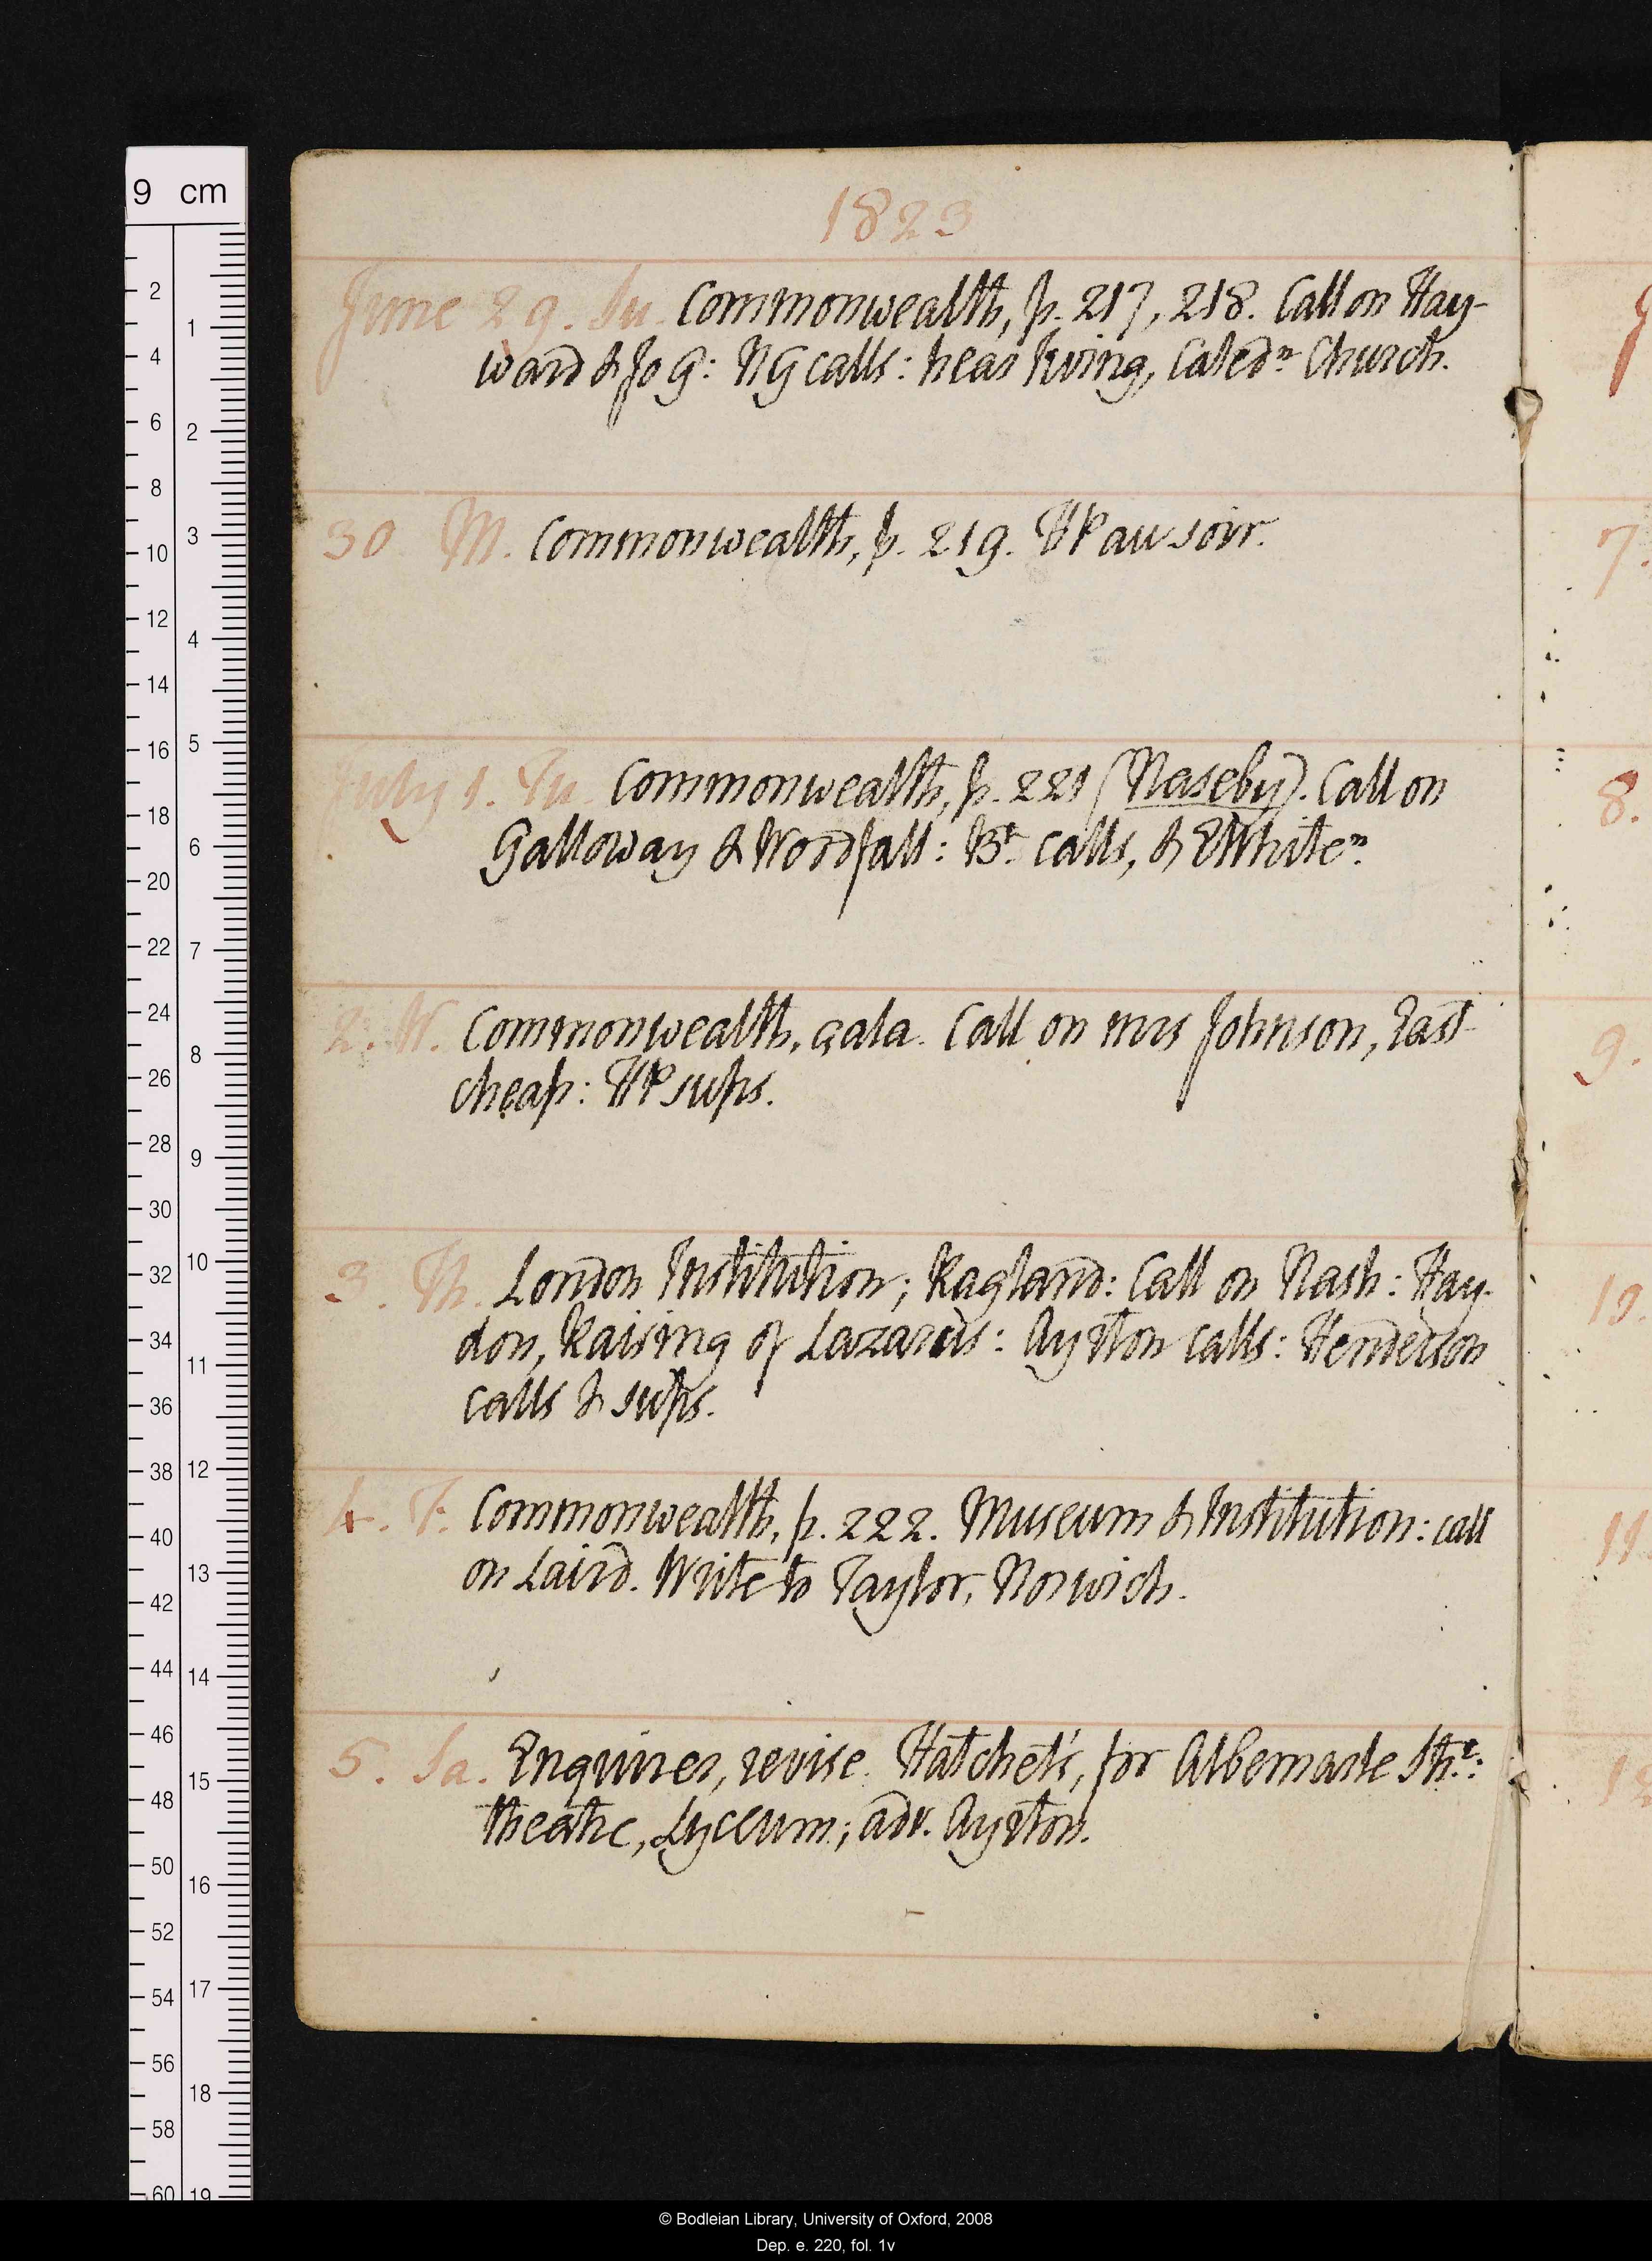 1823
June 29. Su. Commonwealth, p. 217, 218. Call on Hay-
ward & Jo G: NG calls: hear Irving, Caledn. Church.
30 M. Commonwealth, p. 219. HP au soir.
July 1. Tu. Commonwealth, p. 221 (Naseby). Call on
Galloway & Woodfall: Bt. calls, & EWhiten.
2. W. Commonwealth, gala. Call on mrs Johnson, East-
cheap: HP sups.
3. Th. London Institution; Ragland: Call on Nash: Hay-
don, Raising of Lazarus: Ayrton calls: Henderson
calls & sups.
4. F. Commonwealth, p. 222. Museum & Institution: call
on Laird. Write to Taylor, Norwich.
5. Sa. Enquirer, revise. Hatchet's, for Albemarle Stre.:
theatre, Lyceum; adv. Ayrton.
7.
8.
9.
10.
11
12
9 cm
2 4 6 8 10 12 14 16 18 20 22 24 26 28 30 32 34 36 38 40 42 44 46 48 50 52 54 56 58 60
1 2 3 4 5 6 7 8 9 10 11 12 13 14 15 16 17 18 19
© Bodleian Library, University of Oxford, 2008
Dep. e. 220, fol. 1v